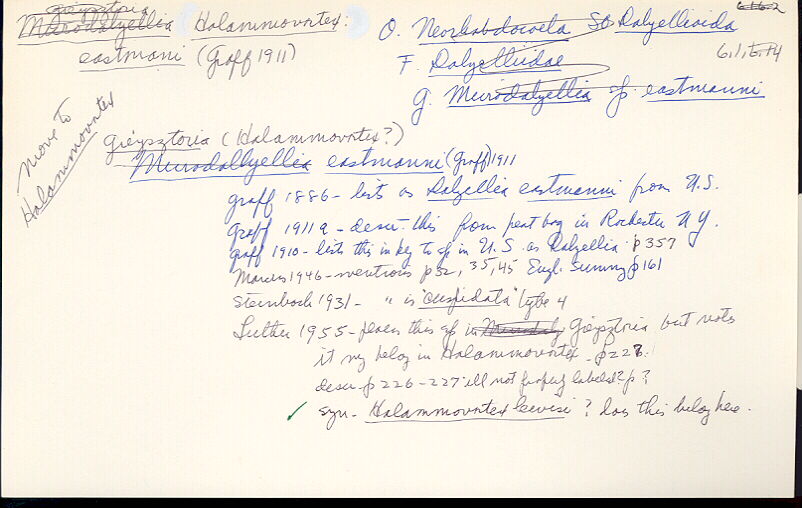 Gieysztoria
Microdalyellia Halammovortex:
eastmani (Graff 1911)
O. Neorhabdocoela SO Dalyellioida
6.1.6.2
6.1.6.P4
F. Dalyelliidae
G. Microdalyellia sp. eastmanni
move to
Halammovortex
Gieysztoria (Halammovortex?)
Microdallyellia eastmanni (Graff) 1911
Graff 1886 - lists as Dalyellia eastmanni from U.S.
Graff 1911a - descr. this from peat bog in Rochester N Y.
Graff 1910 - lists this in key to sp in U.S. as Dalyellia p 357
Marcus 1946 - mentions p 32, 35, 45 Engl. Summ p 161
Steinbock 1931 - " is "cuspidata" type 4
Luther 1955 - places this sp in Microdaly Gieysztoria but notes
it my belog in Halammovortex - p 228.
descr p 226-227 ill not properly labeled? p?
✓ syn - Halammovortex lewisi? does this belog here.